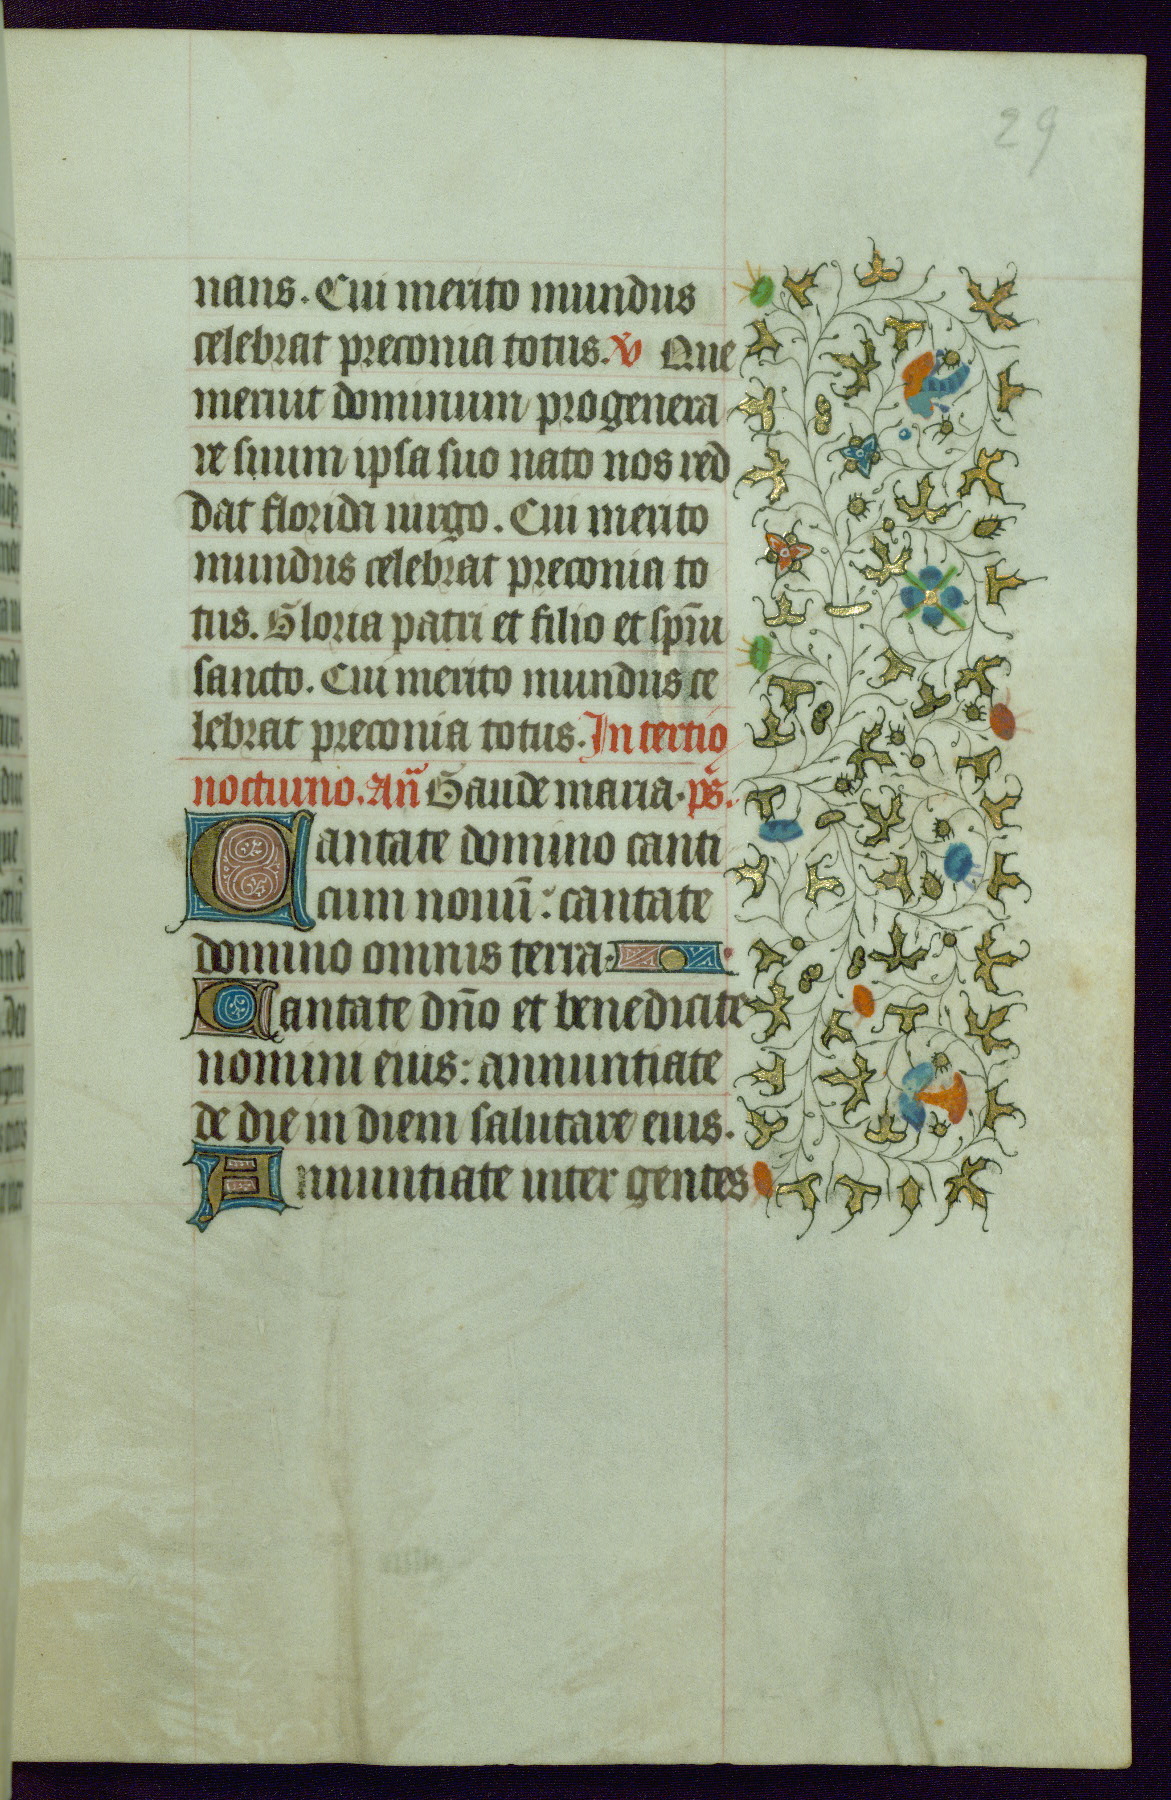 29
nans. Cui merito mundus
celebrat preconia totus. V̄ Que
meruit dominum progenera
re suum ipsa suo nato nos red
dat florida uirgo. Cui merito
mundus celebrat preconia to
tus. Gloria patri et filio et sp̄iu
sancto. Cui merito mundus ce
lebrat preconia totus. In tertio
nocturno. Añ Gaude maria. p̄s.
Cantate domino canti
cum nouū: cantate
domino omnis terra.
Cantate dño et benedicite
nomini eius: annuntiate
de die in diem salutare eius.
Annuntiate inter gentes